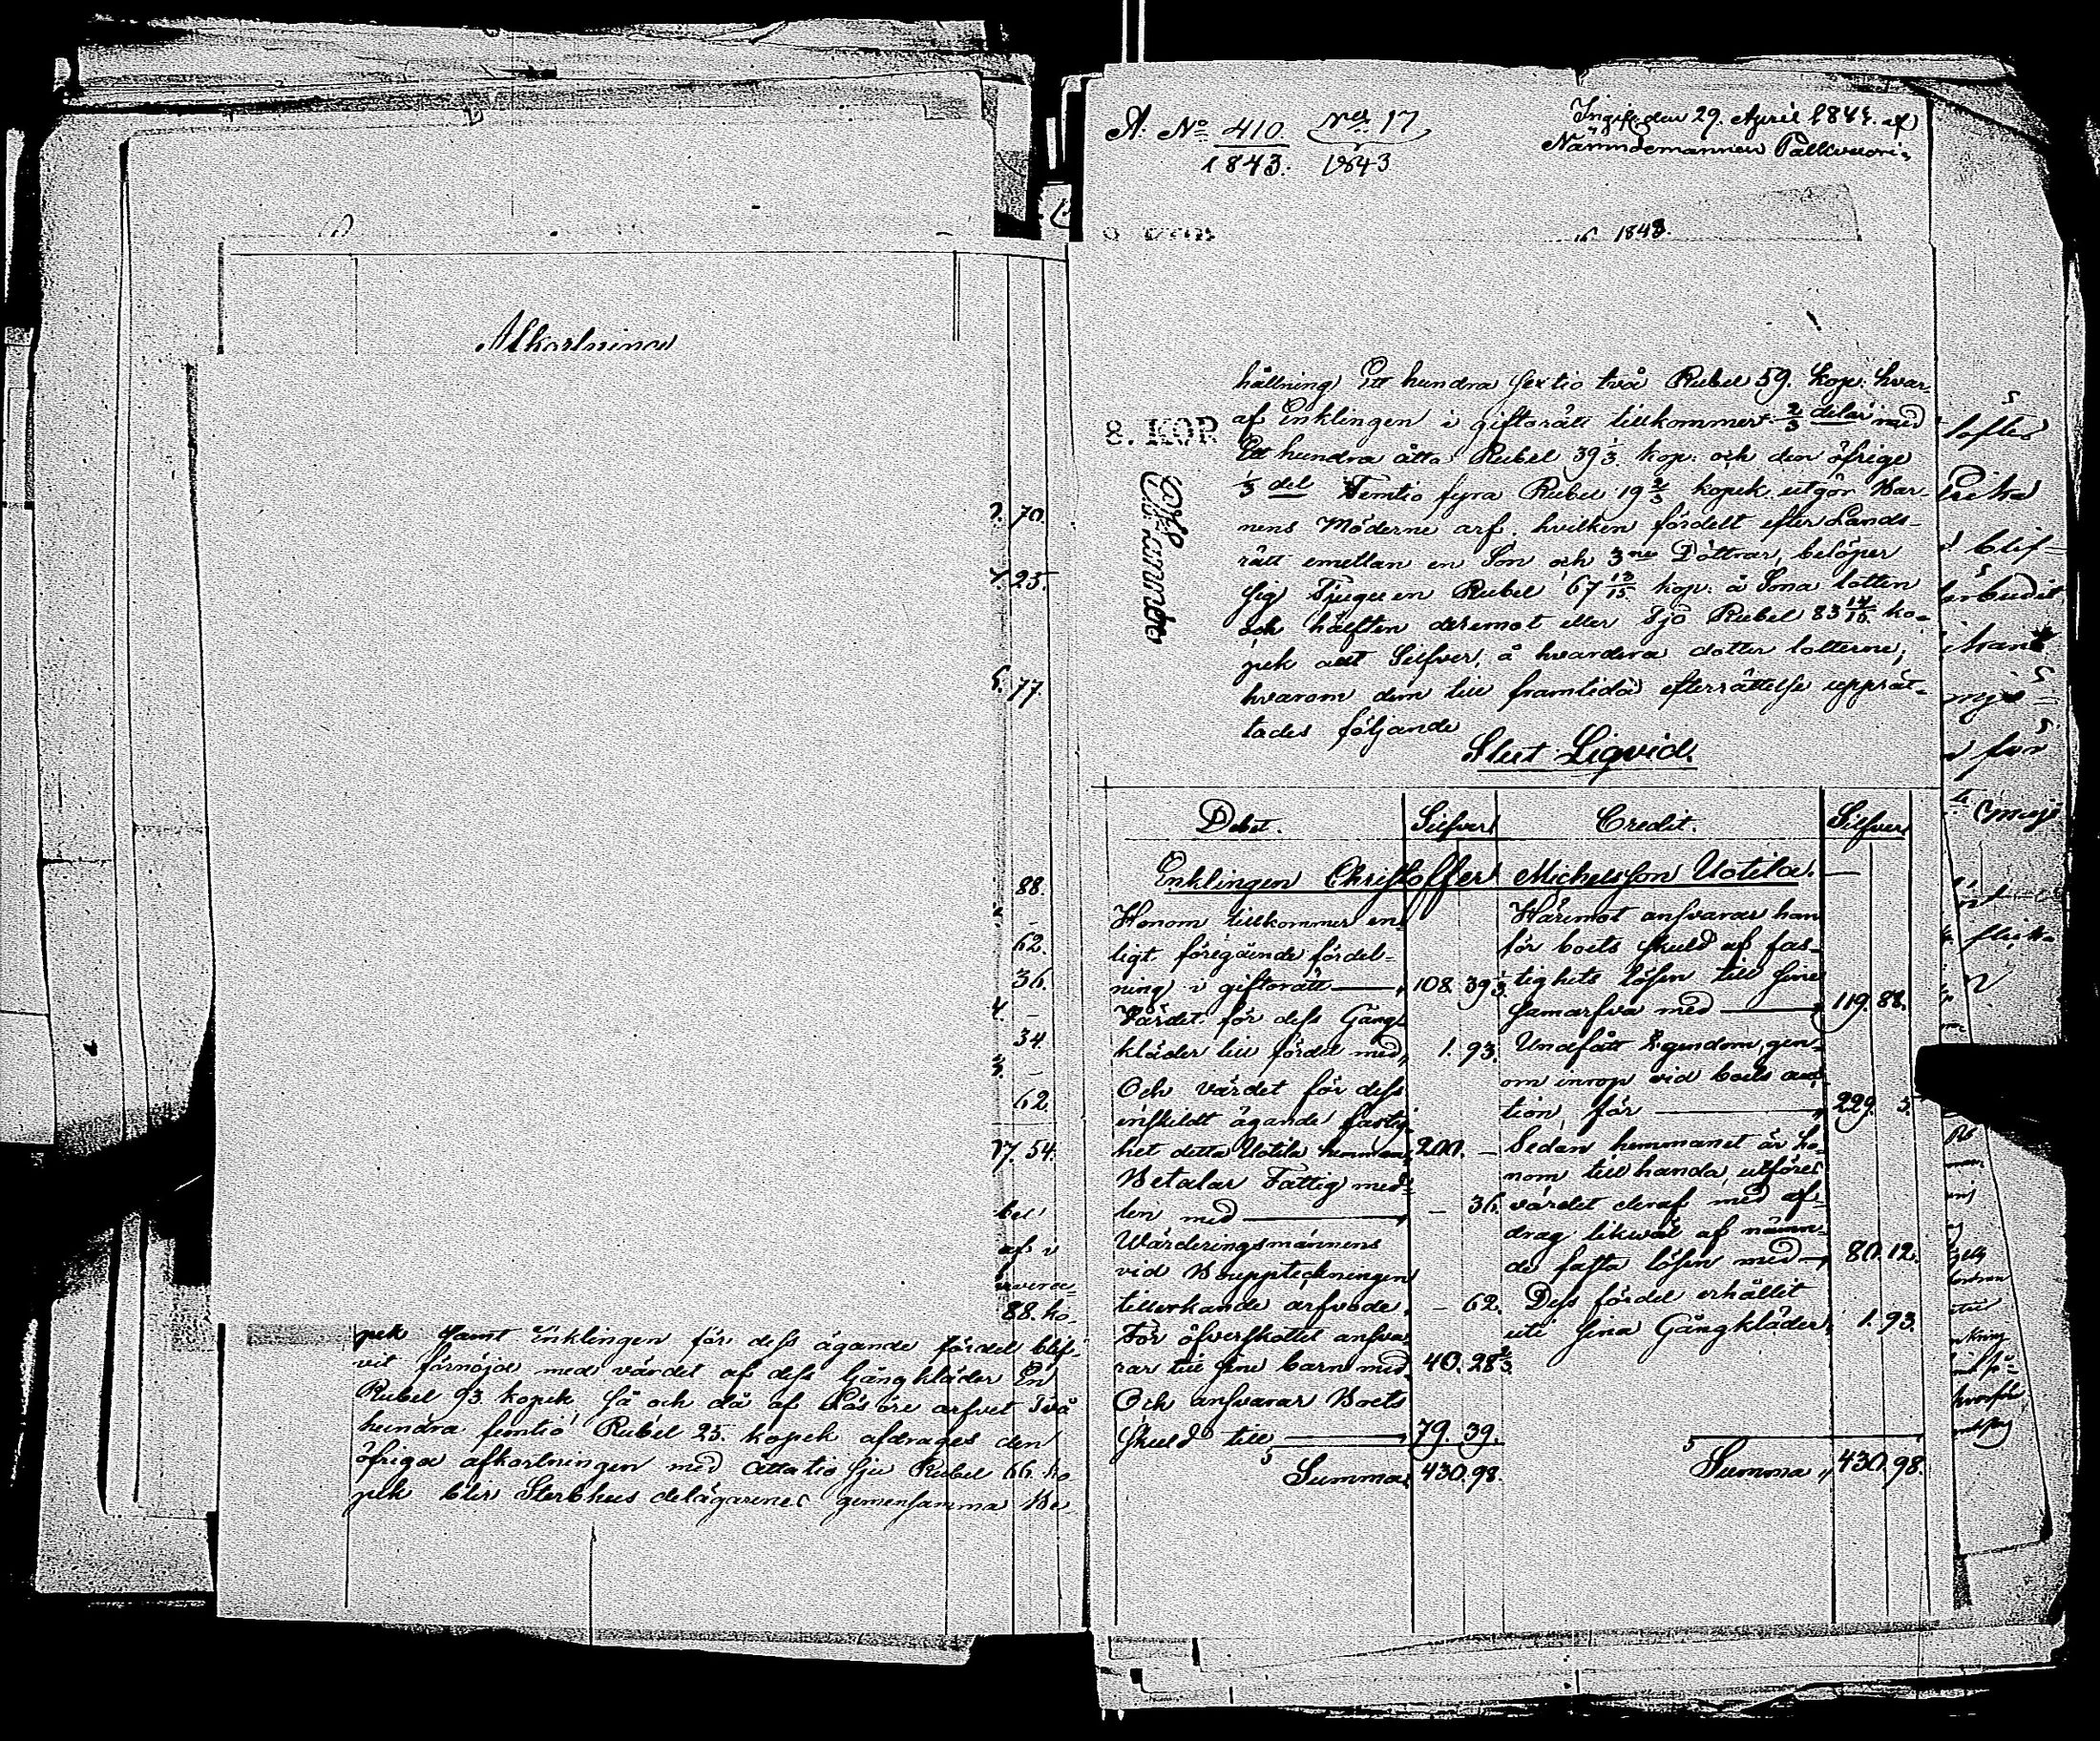 Afkortninar
70.
23.
77.
88.
62.
36.
34.
62.
54.
af i
88. ko-
pek samt Enklingen för dess ägande fördel blif-
vit förnöjd med värdet af dess Gångkläder En
Rubel 93 kopek, så och då af Lösöre arfvet Två
hundra femtio Rubel 25. kopek afdrages den
öfriga afkortningen med åttatio sju Rubel 66. ko
pek blir Sterbhus delägarenes gemensamma Be
A. No 410 1843. No 17 1843
Ingif. den 29. April 1844. af
Nämndemannen Palkvuori.
1843.
hållning Ett hundra sextio två Rubel 59. kop: hvar-
af Enklingen i giftorätt tillkommer 2/3 delar med
8. KOP
Ett hundra åtta Rubel 39 1/3 kop: och den öfrige
1/3 del Femtio fyra Rubel 19 2/3 kopek utgör Bar-
nens Möderne arf, hvilken fördelt efter Lands-
rätt emellan en Son och 3ne Döttrar, belöper
sig Tjuguen Rubel 67 13/15 kop: å Sona lotten
och hälften deremot eller Tjo Rubel 83 14/15 ko-
pek allt Silfver, å hvardera dotter lotterne;
hvarom dem till framtida efterrättelse upprät-
tades följande
Slut Liqvid.
Debet. Silfver Credit. Silfver
Enklingen Christoffer Michelsson Uotila.
Honom tillkommer en-
ligt föregående fördel-
ning i giftorätt 108. 39 1/3.
Värdet för dess Gång-
kläder till fördel med 1. 93.
Och värdet för dess
enskildt ägande fastig-
het detta Uotila hemman 200. –
Betalar Fattig med-
len med – 36.
Wärderingsmännens
vid Bouppteckningen
tillerkande arfvode – 62.
För öfverskottet ansva-
rar till sine barn med 40. 28 2/3
Och ansvarar Boets
skuld till 79. 39.
Summa 430. 98.
Häremot ansvarar han
för boets skuld af fas-
tighets lösen till sine
samarfva med 119. 88.
Undfått Egendom gen-
om inrop vid boets auc-
tion för 229. 5.
Sedan hemmanet är ho-
nom till handa, utföres
värdet deraf med af-
drag likwäl af nämn-
de fasta lösen med 80. 12.
Dess fördel erhållit
uti sina Gångkläder 1. 93.
Summa 430. 98.